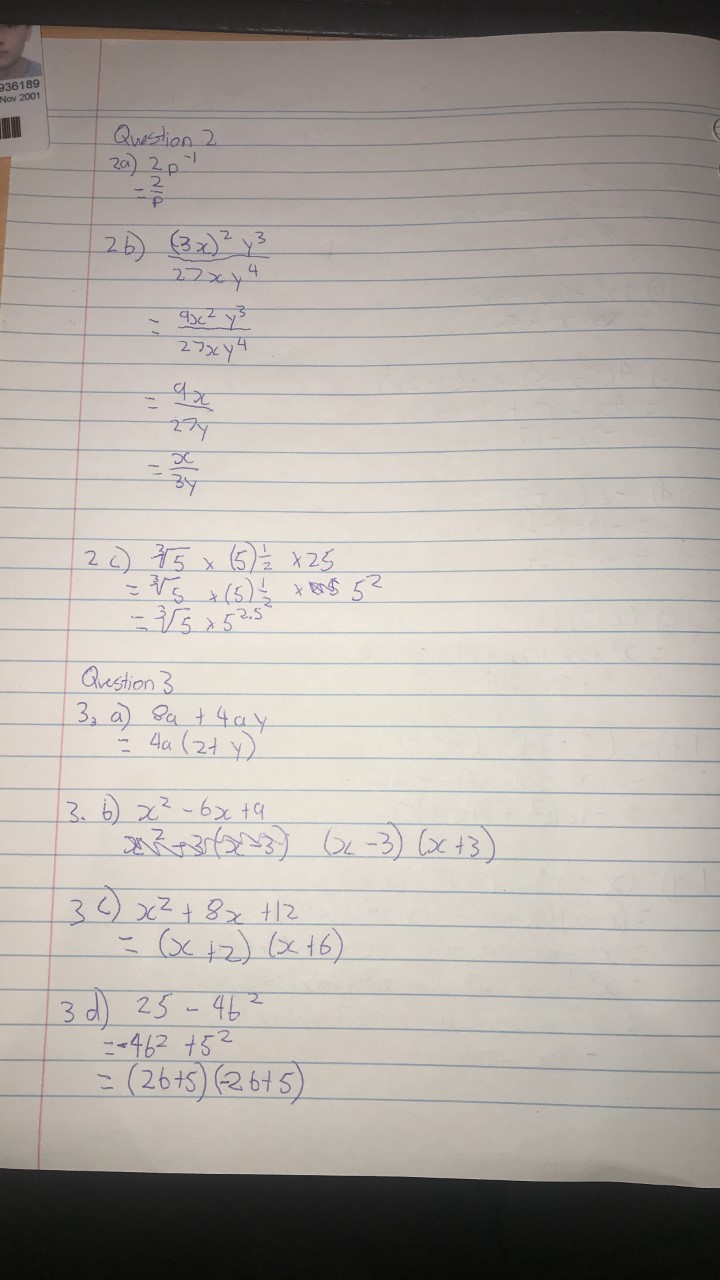 936189
Nov 2001
Question 2
2a) 2p⁻¹
= 2/p
2b) (3x)² y³ / 27xy⁴
= 9x² y³ / 27xy⁴
= 9x / 27y
= x / 3y
2c) ∛5 × (5)^½ × 25
= ∛5 × (5)^½ × 5²
= ∛5 × 5^2.5
Question 3
3, a) 8a + 4ay
= 4a(2+y)
3. b) x² - 6x + 9
x² - 3(x-3) (x-3) (x+3)
3 c) x² + 8x + 12
= (x+2) (x+6)
3 d) 25 - 4b²
= -4b² + 5²
= (2b+5)(-2b+5)